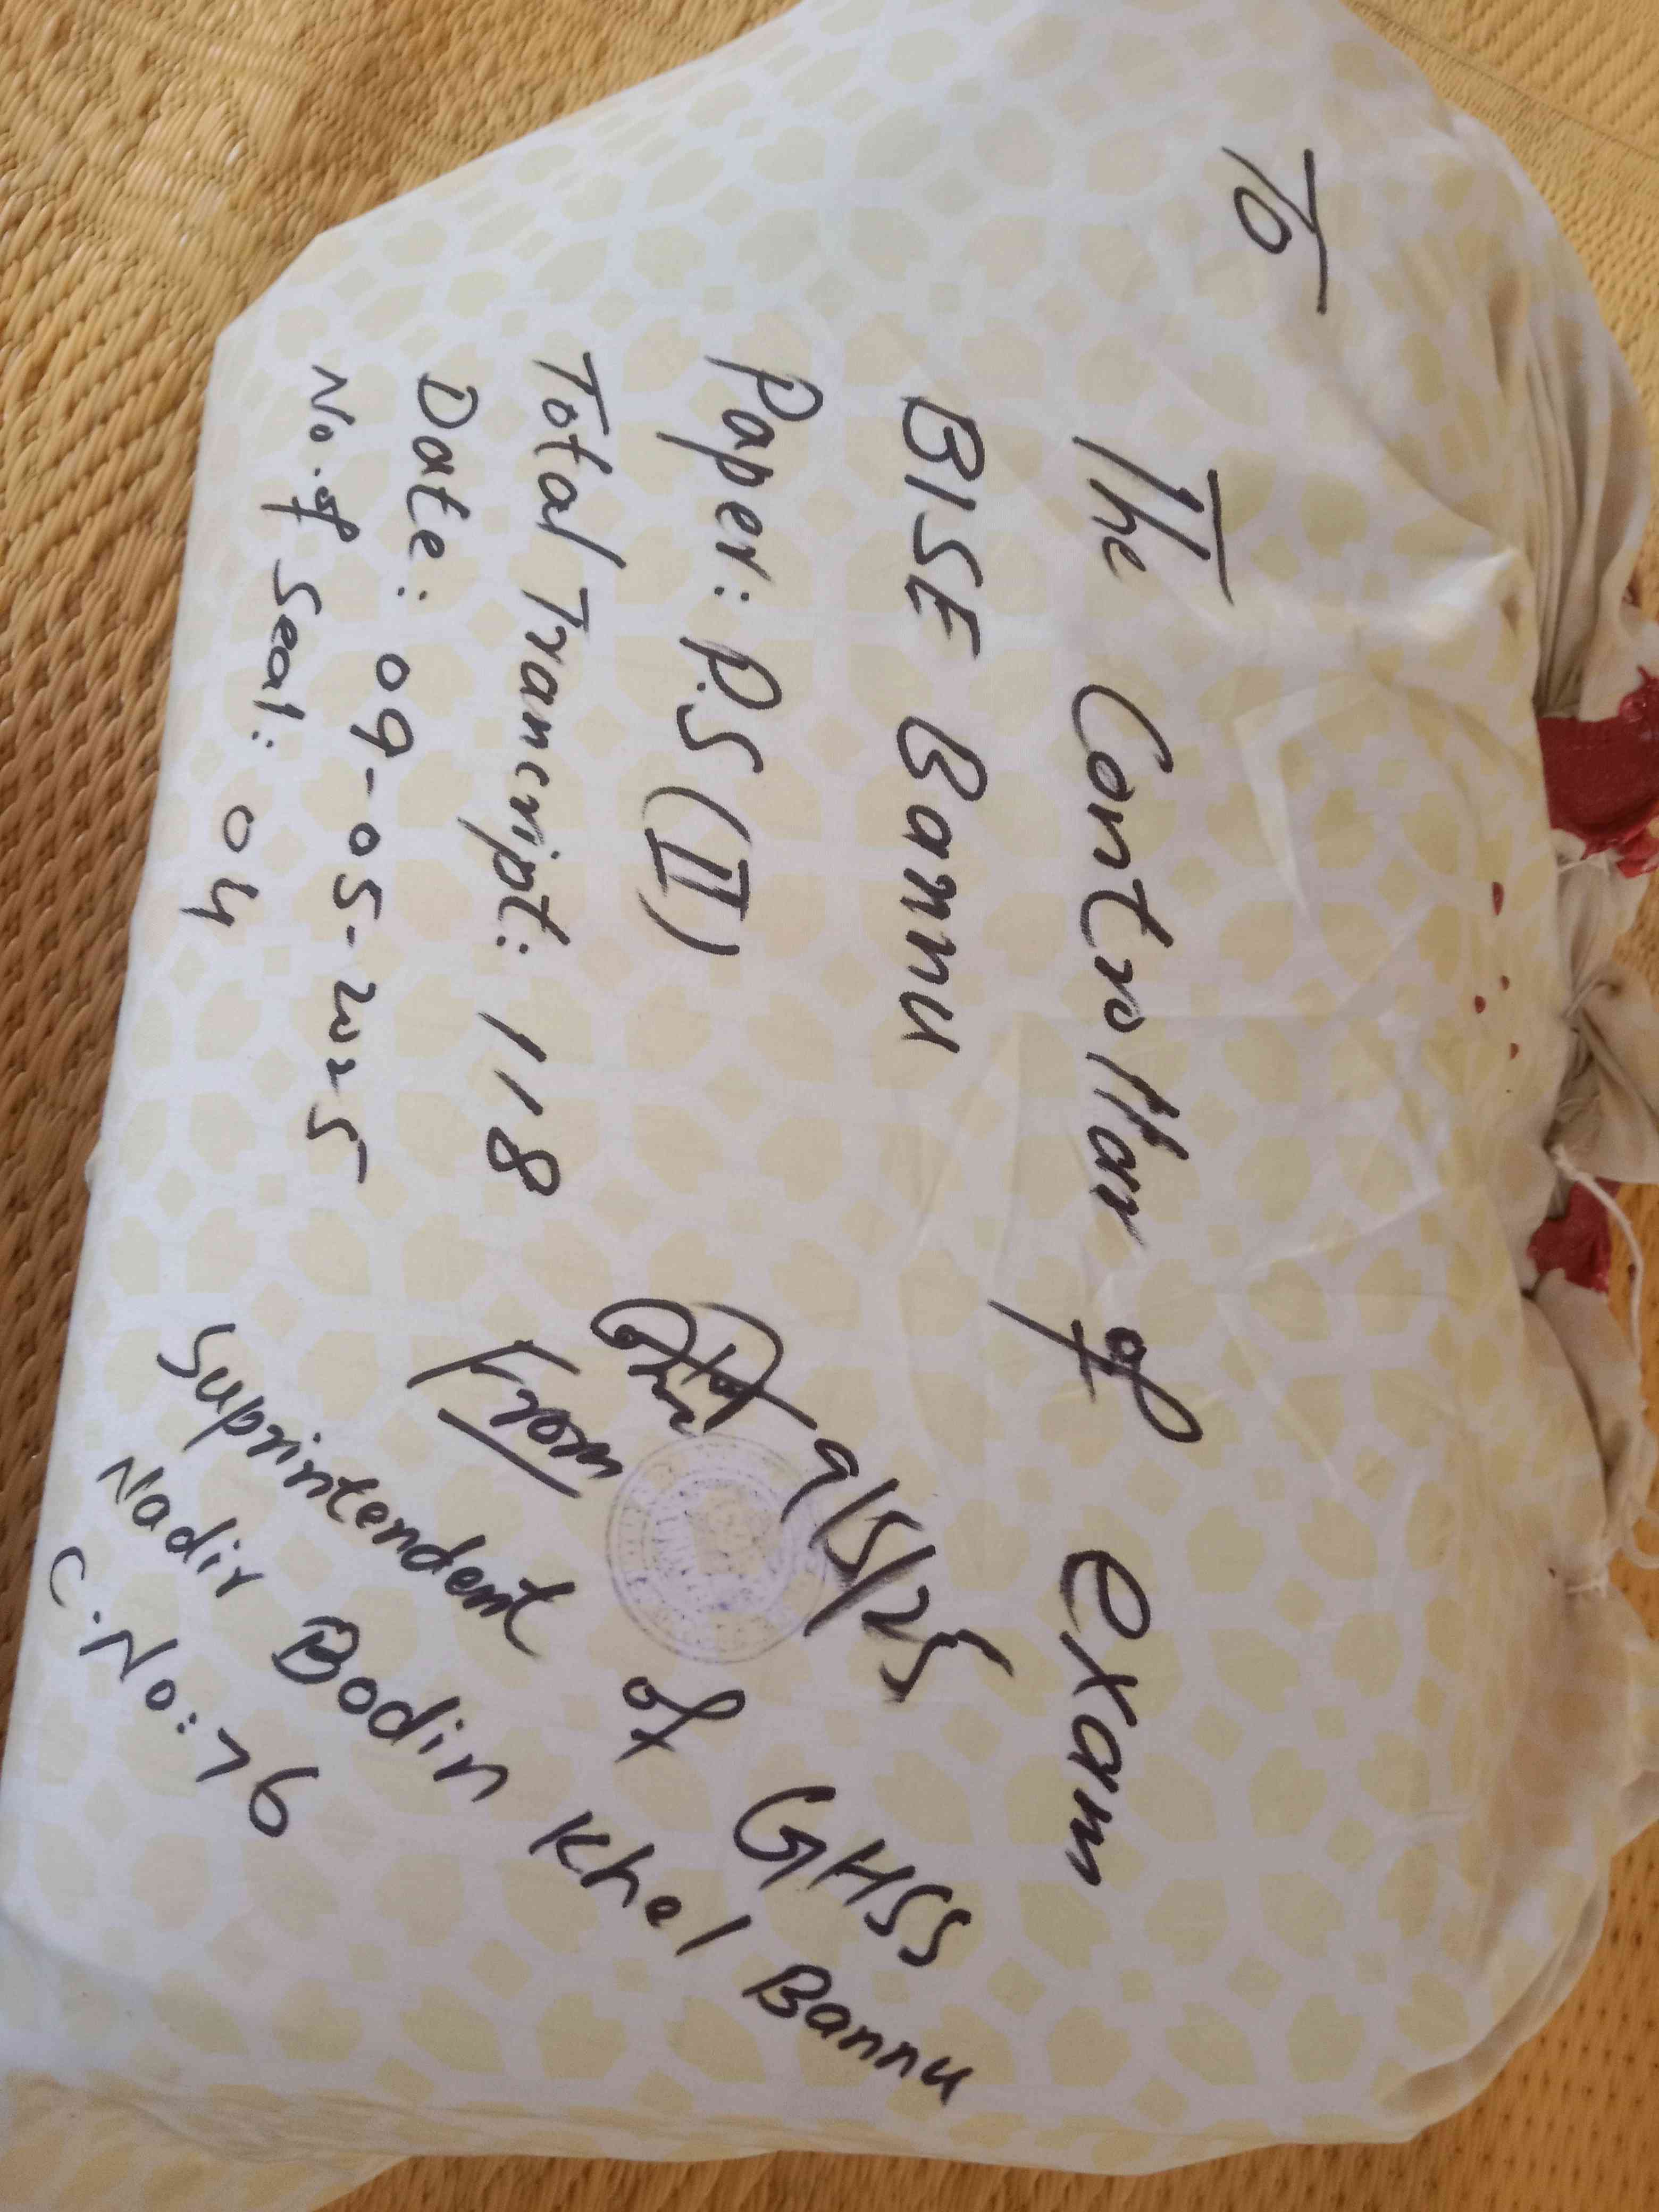 To
The Controllar of exam
BISE Bannu
Paper: P.S (II)
Total Trancript: 118
Date: 09-05-2025
No. of Seal: 04
9/5/25
From
Suprintendent of GHSS
Nadir Bodin Khel Bannu
C.No: 76